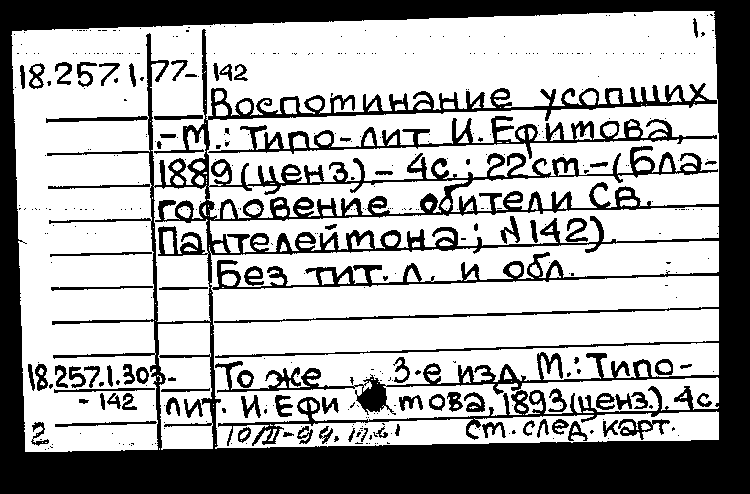 1.
18.257.1.77- 142
Воспоминание усопших
.-М.: Типо-лит И. Ефимова,
1889 (ценз.) - 4с.; 22 ст. - (Бла-
гословение обители Св.
Пантелеймона; N 142).
Без тит. л. и обл.
18.257.1.303- То же 3-е изд. М.: Типо-
- 142 лит. И. Ефимова, 1893 (ценз.). 4с.
2 10/II-99. ст. след. карт.